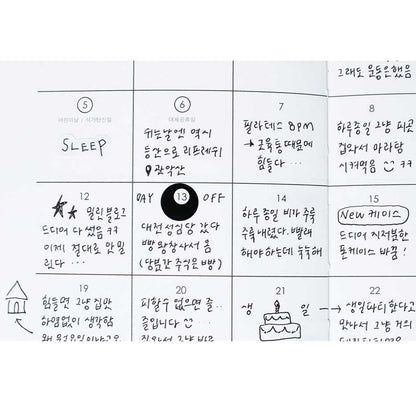 그래도 운동은했음
5
어린이날 / 석가탄신일
SLEEP
6
대체공휴일
쉬는날엔 역시
등산으로 리프레쉬
관악산
7
필라테스 8PM
→ 근육통때문에
힘들다...
8
하루종일 그냥 피곤
집와서 마라탕
시켜먹음 ㅋㅋ
12
밀린 블로그
드디어 다 썼음 ㅋㅋ
이제 절대로 안 밀
린다...
DAY 13 OFF
대전 성심당 갔다
빵 왕창사서 옴
(당분간 주식은 빵)
14
하루 종일 비가 주룩
주룩 내렸다. 빨래
해야 하는데 눅눅해
15
New 케이스
드디어 지저분한
폰케이스 바꿈!
19
힘들면 그냥 집앞
하염없이 생각함
20
피할수 없으면 즐..
즐입니다
21
생 일
22
→ 생일파티 한다고
만나서 그냥 거의